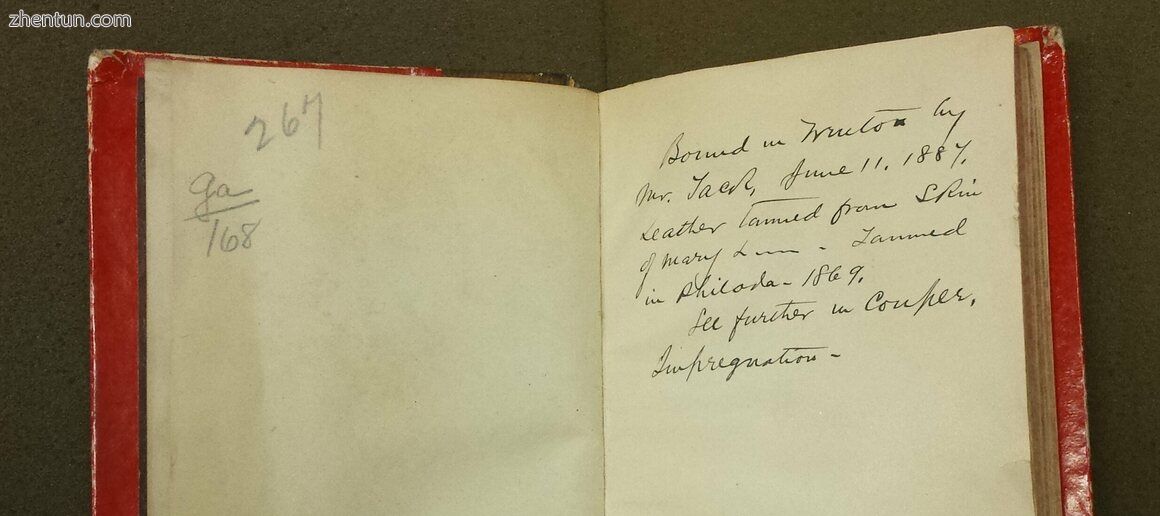 zhentun.com
267
ga
168
Bound in Trenton by
Mr. Jacob, June 11. 1887.
Leather tanned from Skin
of Mary L - Tanned
in Philada - 1869.
See further in Couper,
Impregnation -